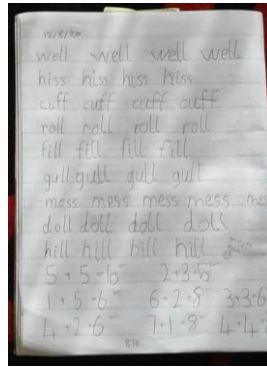 well well well well
hiss hiss hiss hiss
cuff cuff cuff cuff
roll roll roll roll
fill fill fill fill
gull gull gull gull
mess mess mess mess mess
doll doll doll doll
hill hill hill hill
5 + 5 = 10 2 + 3 = 5
1 + 5 = 6 6 + 2 = 8 3 + 3 = 6
4 + 2 = 6 7 + 1 = 8 4 + 4 =